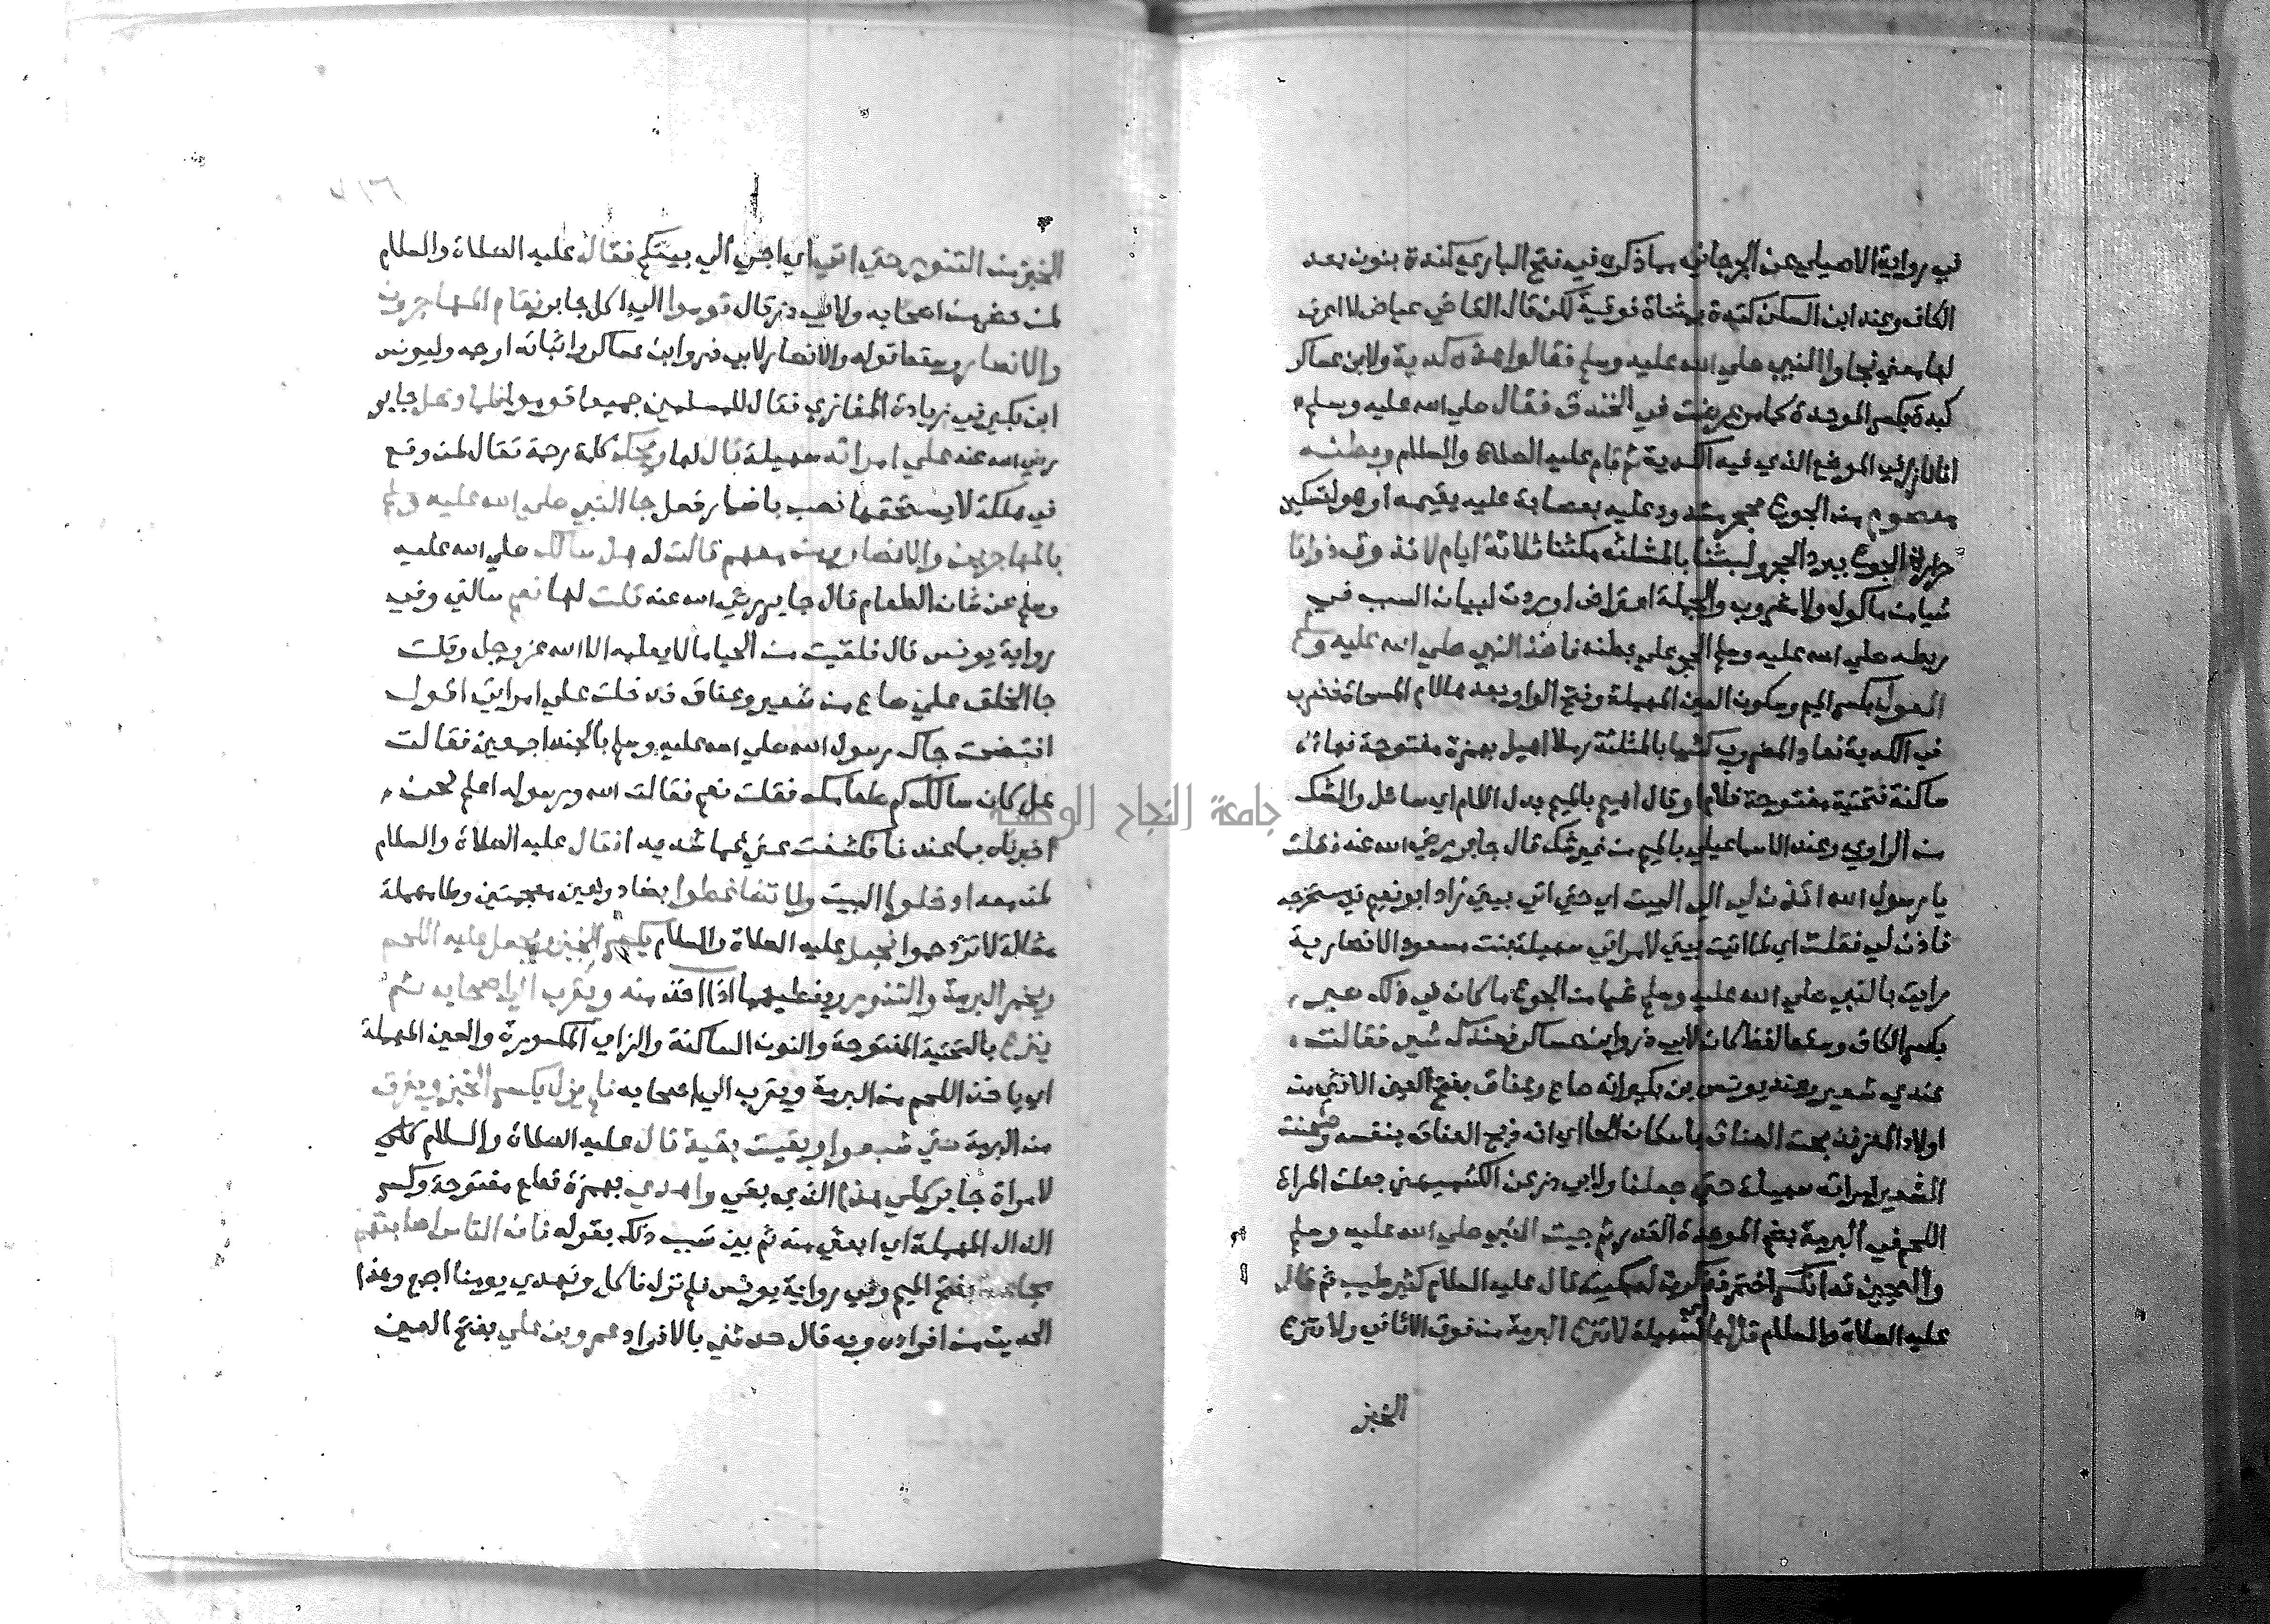 في رواية الاصيلي عن الجرجاني مما ذكره في فتح الباري كندة بنون بعد
الكاف وعند ابن السكن كتدة بمثناة فوقية لكن قال القاضي عياض لا اعرف
لها معني فجاوا النبي صلي الله عليه وسلم فقالوا هذه كدية ولابن عساكر
كبدة بكسر الموحدة كما مر عرضت في الخندق فقال صلي الله عليه وسلم
انا نازل في الموضع الذي فيه الكدية ثم قام عليه الصلاة والسلام وبطنه
معصوب من الجوع بحجر مشدود عليه بعصابة عليه يقيمه او هو لتسكين
حرارة الجوع ببرد الحجر ولبثنا بالمثلثه مكثنا ثلاثة ايام لا نذوق ذواقا
شيا من ماكول ولا مشروب والجملة اعتراض اوردت لبيان السبب في
ربطه صلي الله عليه وسلم الحجر علي بطنه فاخذ النبي صلي الله عليه وسلم
المعول بكسر الميم وسكون العين المهملة وفتح الواو بعدها لام المسحاة فضرب
في الكدية فعاد المضروب كثيبا بالمثلثة رملا اهيل بهمزة مفتوحة فهاء
ساكنة فتحتية مفتوحة فلام او قال اهيم بالميم بدل اللام اي سائل والشك
من الراوي وعند الاسماعيلي بالميم من غير شك قال جابر رضي الله عنه فقلت
يا رسول الله ائذن لي الي البيت اي حتي اتي بيتي زاد ابو نعيم في مستخرجه
فاذن لي فقلت اي لما اتيت بيتي لامراتي سهيلة بنت مسعود الانصارية
رايت بالنبي صلي الله عليه وسلم شيا من الجوع ما كان في ذلك صبر
بكسر الكاف وسقط لفظ كان لابي ذر وابن عساكر فعندك شي فقالت
عندي شعير وعند يونس بن بكير انه صاع وعناق بفتح العين الانثي من
اولاد المعز فذبحت العناق باسكان الحا اي انه ذبح العناق بنفسه وطحنت
الشعير امراته سهيلة حتي جعلنا ولابي ذر عن الكشميهني جعلت المراة
اللحم في البرمة بضم الموحدة القدر ثم جيت النبي صلي الله عليه وسلم
والعجين قد انكسر اختمر قال عليه السلام كثير طيب ثم قال
عليه الصلاة والسلام قل لها لسهيلة لا تنزع البرمة من فوق الاثافي ولا تنزع
الخبز
الخبز من التنور حتي اتي اي اجي الي بيتكم فقال عليه الصلاة والسلام
لمن حضر من اصحابه ولابي ذر قال قوموا الي اكل جابر فقام المهاجرون
والانصار وسقط قوله والانصار لابي ذر وابن عساكر واثباته اوجه وليونس
ابن بكير في زيادة المغازي فقال للمسلمين جميعا قوموا فلما دخل جابر
رضي الله عنه علي امراته سهيلة قال لها ويحك كلمة رحمة تقال لمن وقع
في هلكة لا يستحقها نصب باضمار فعل جا النبي صلي الله عليه وسلم
بالمهاجرين والانصار ومن معهم قالت له هل سالك صلي الله عليه
وسلم عن شان الطعام قال جابر رضي الله عنه قلت لها نعم سالني وفي
رواية يونس قال فلقيت من الحيا ما لا يعلمه الا الله عز وجل وقلت
جا الخلق علي صاع من شعير وعناق فدخلت علي امراتي اقول
افتضحت جاك رسول الله صلي الله عليه وسلم بالجند اجمعين فقالت
هل كان سالك كم طعامك فقلت نعم فقالت الله ورسوله اعلم نحن
اخبرناه بما عندنا فكشفت عني غما شديدا فقال عليه الصلاة والسلام
لمن معه ادخلوا البيت ولا تضاغطوا بضاد وغين معجمتين وطا مهملة
مشالة لا تزدحموا فجعل عليه الصلاة والسلام يكسر الخبز ويجعل عليه اللحم
ويخمر البرمة والتنور ويغطيهما اذا اخذ منه ويقرب الي اصحابه ثم
ينزع بالتحتية المفتوحة والنون الساكنة والزاي المكسورة والعين المهملة
اي ياخذ اللحم من البرمة ويقرب الي اصحابه فلم يزل يكسر الخبز ويغرف
من البرمة حتي شبعوا وبقيت بقية قال عليه الصلاة والسلام كلي
لامراة جابر كلي هذا الذي بقي واهدي بهمزة قطع مفتوحة وكسر
الدال المهملة اي ابعثي منه ثم بين سبب ذلك بقوله فان الناس اصابتهم
مجاعة بفتح الميم وفي رواية يونس فلم نزل ناكل ونهدي يومنا اجمع وهذا
الحديث من افراده وبه قال حدثني بالافراد عمرو بن علي بفتح العين
جامعة النجاح الوطنية